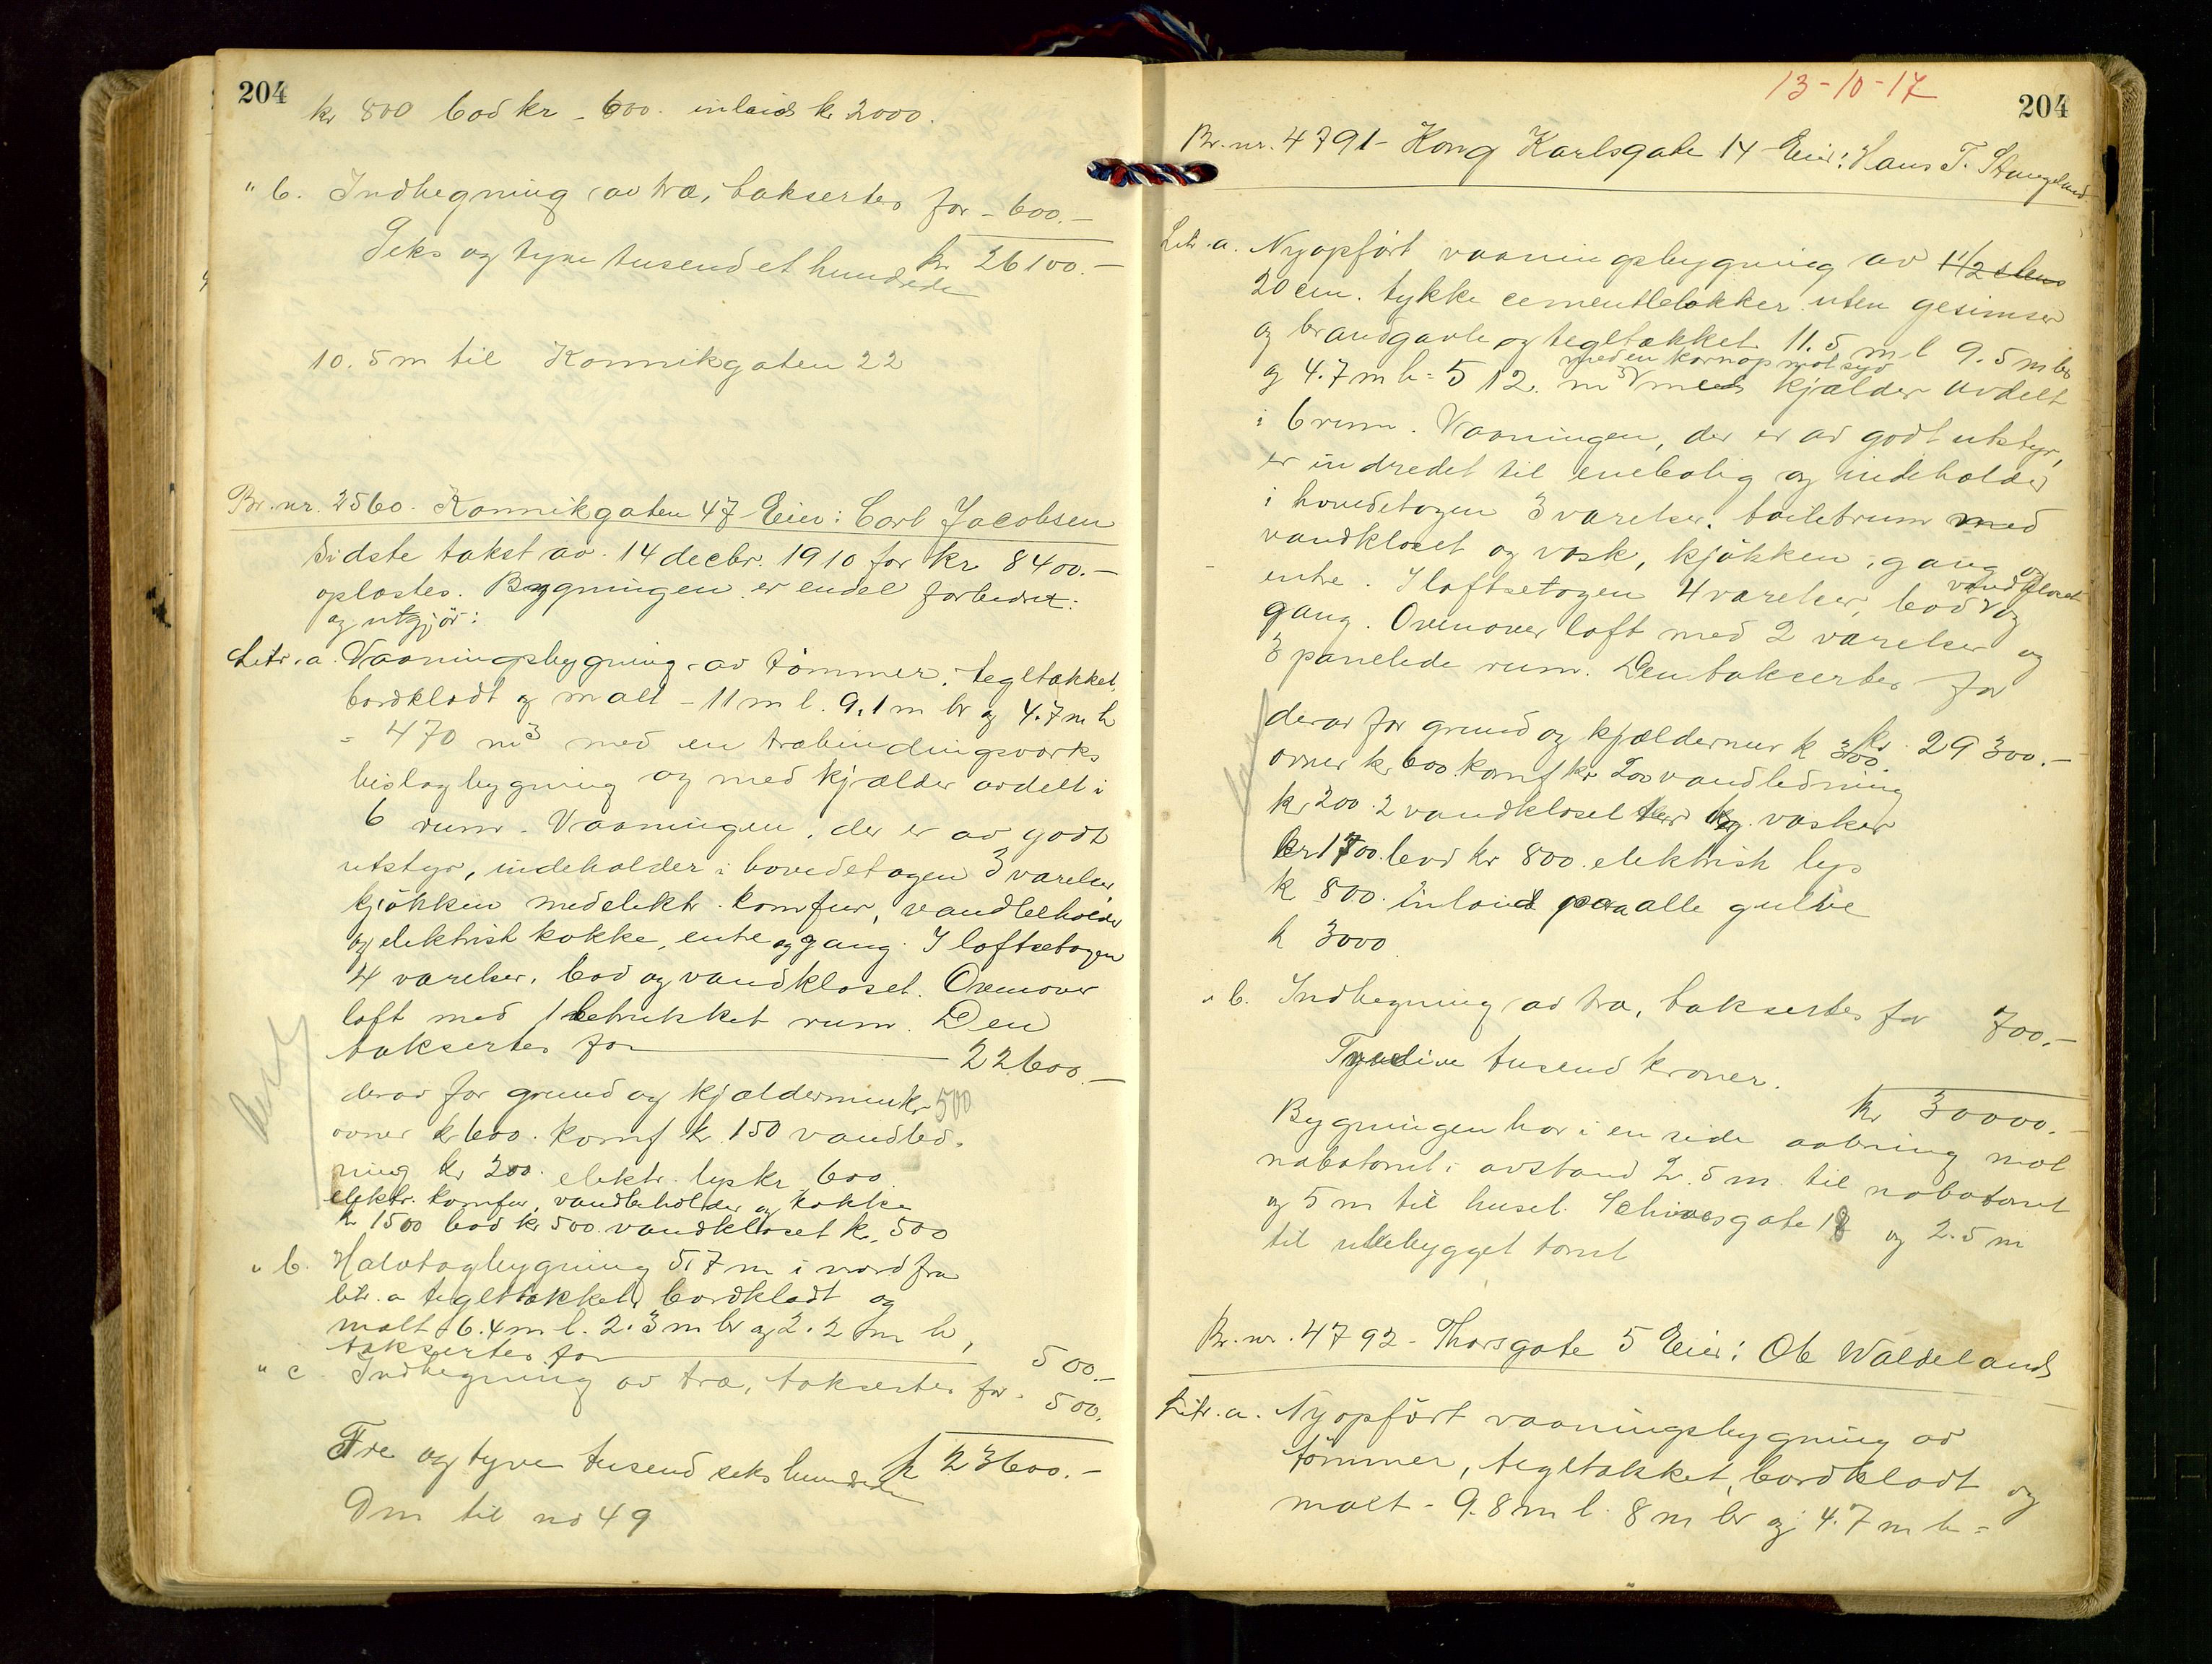 204
kr 800 bod kr - 600. inlaid kr 2000.
" b. Indhegning av træ, takseres for - 600.-
Seks og tyve tusend et hundrede kr 26100.-
10.5 m til Konnikgaten 22
Br. nr. 2560. Kannikgaten 47 Eier: Carl Jacobsen
Sidste takst av. 14 decbr. 1910 for kr 8400.-
oplæstes. Bygningen er endel forbedret:
og utgjør:
Litr. a. Vaaningsbygning av tømmer, tegltækket,
bordklædt og malt - 11 m l. 9,1 m br og 4.7 m h
= 470 m3 med en træbindingsverks
bislagbygning og med kjælder avdelt i
6 rum. Vaaningen, der er av godt
utstyr, indeholder i hovedetagen 3 værelser,
kjøkken med elektr. komfur, vandbeholder
og elektrisk kokke, entre og gang. I loftsetagen
4 værelser, bod og vandkloset. Ovenover
loft med 1 betrukket rum. Den
takseres for 22600.-
derav for grund og kjældermur kr 500
ovner kr 600. komf kr. 150 vandled-
ning kr 200. elektr. lys kr 600
elektr. komfur, vandbeholder og kokke
kr 1500 bod kr 500. vandkloset kr. 500
" b. Halvtagbygning 5.7 m i nord fra
litr. a tegltækket, bordklædt og
malt 6.4 m l. 2.3 m br og 2.2 m h,
takseres for 500.-
" c. Indhegning av træ, takseres for. 500.
Tre og tyve tusend seks hundrede kr 23600.-
0 m til no 49
13-10-17
204
Br. nr. 4791 - Kong Karlsgate 14 Eier: Hans T. Stangeland.
Litr. a. Nyopført vaaningsbygning av 1 1/2 stens
20 cm. tykke cementblokker uten gesimser
og brandgavle og tegltækket. 11.5 m l 9.5 m br
med en karnap mot syd
og 4.7 m h = 512. m3 med kjælder avdelt
i 6 rum. Vaaningen, der er av godt utstyr,
er indredet til enebolig og indeholder
i hovedetagen 3 værelser, toiletrum med
vandkloset og vask, kjøkken, gang og
entre. I loftsetagen 4 værelser, bod vandkloset og
gang. Ovenover loft med 2 værelser og
3 panelede rum. Den takseres for
kr. 29300.-
derav for grund og kjældermur kr 300.
ovner kr 600. komf kr 200 vandledning
kr 200. 2 vandkloset og vasker
kr 1700. bod kr 800. elektrisk lys
kr 800. inlaid paa alle gulve
kr 3000.
" b. Indhegning av træ, takseres for 700.-
Tredive tusend kroner.
kr 30000.-
Bygningen har i en side aabning mot
nabotomt i avstand 2.5 m. til nabotomt
og 5 m til huset. Schivesgate 18 og 2.5 m
til ubebygget tomt
Br. nr. 4792 - Thorsgate 5 Eier: Ole Waldeland
Litr. a. Nyopført vaaningsbygning av
tømmer, tegltækket, bordklædt og
malt - 9.8 m l. 8 m br og 4.7 m h =